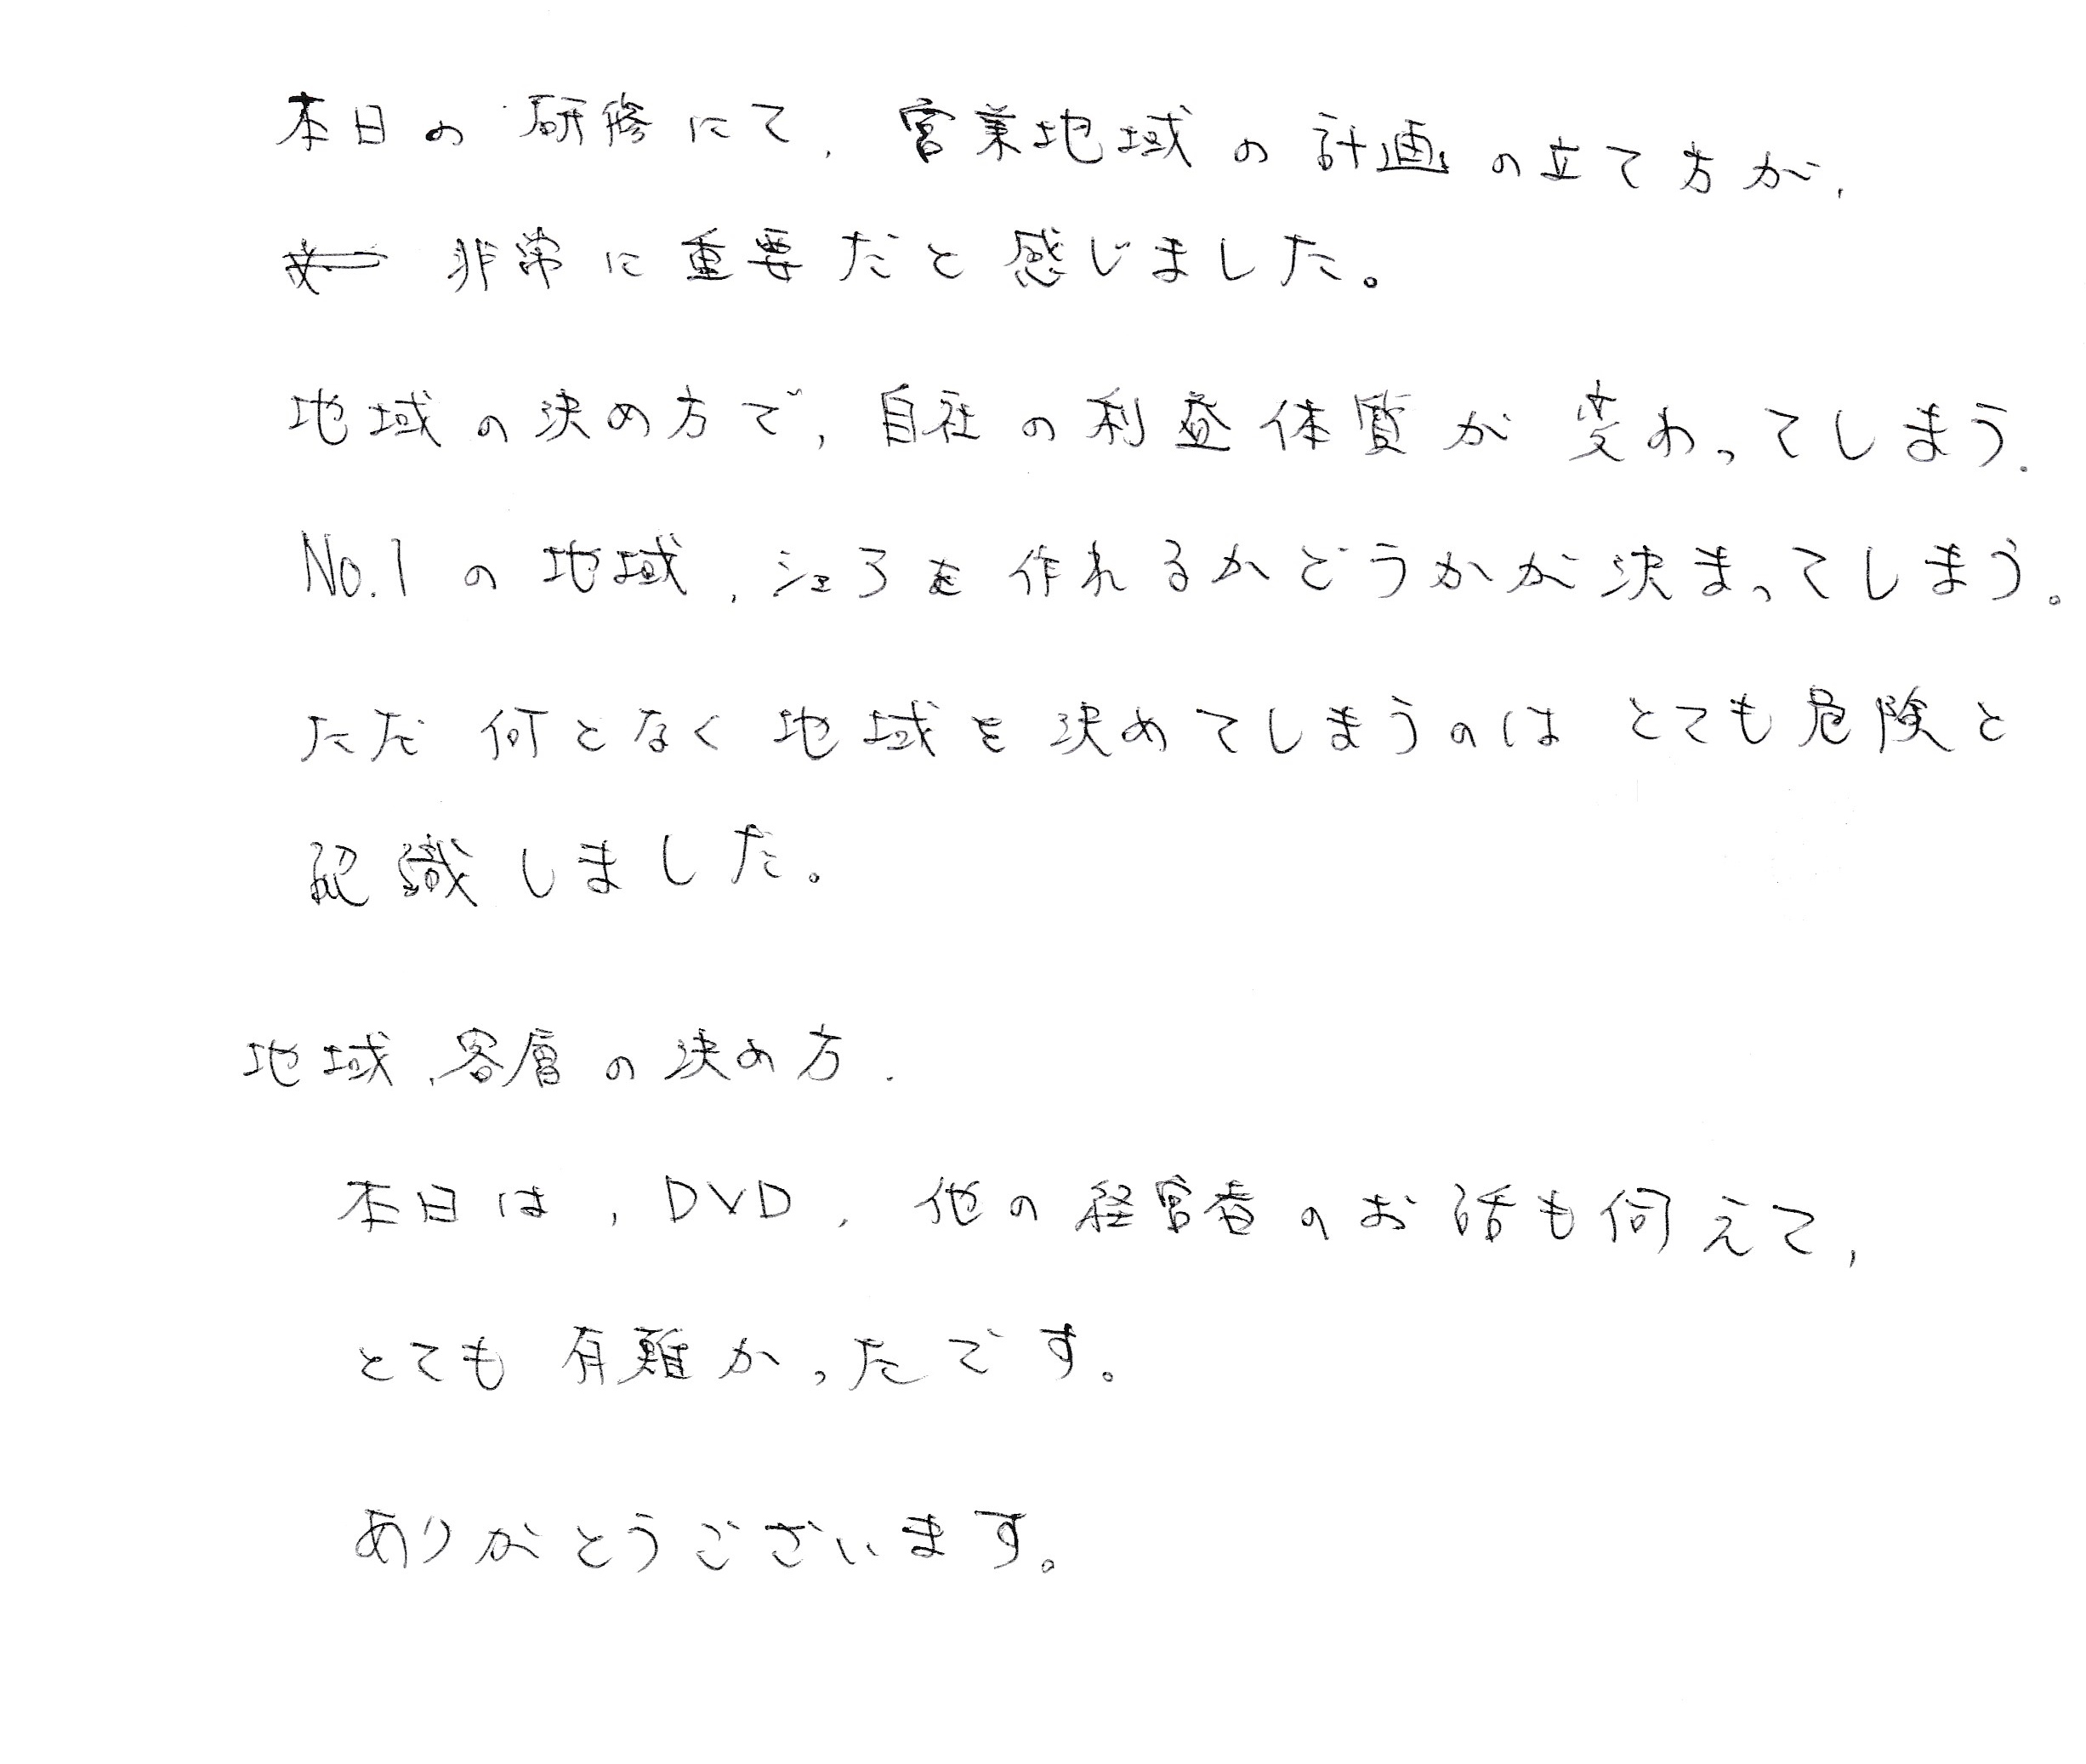 本日の研修にて、営業地域の計画の立て方が、
非常に重要だと感じました。
地域の決め方で、自社の利益体質が変わってしまう。
No.1の地域、シェアを作れるかどうかが決まってしまう。
ただ何となく地域を決めてしまうのはとても危険と
認識しました。
地域、客層の決め方.
本日は、DVD、他の経営者のお話も伺えて、
とても有難かったです。
ありがとうございます。